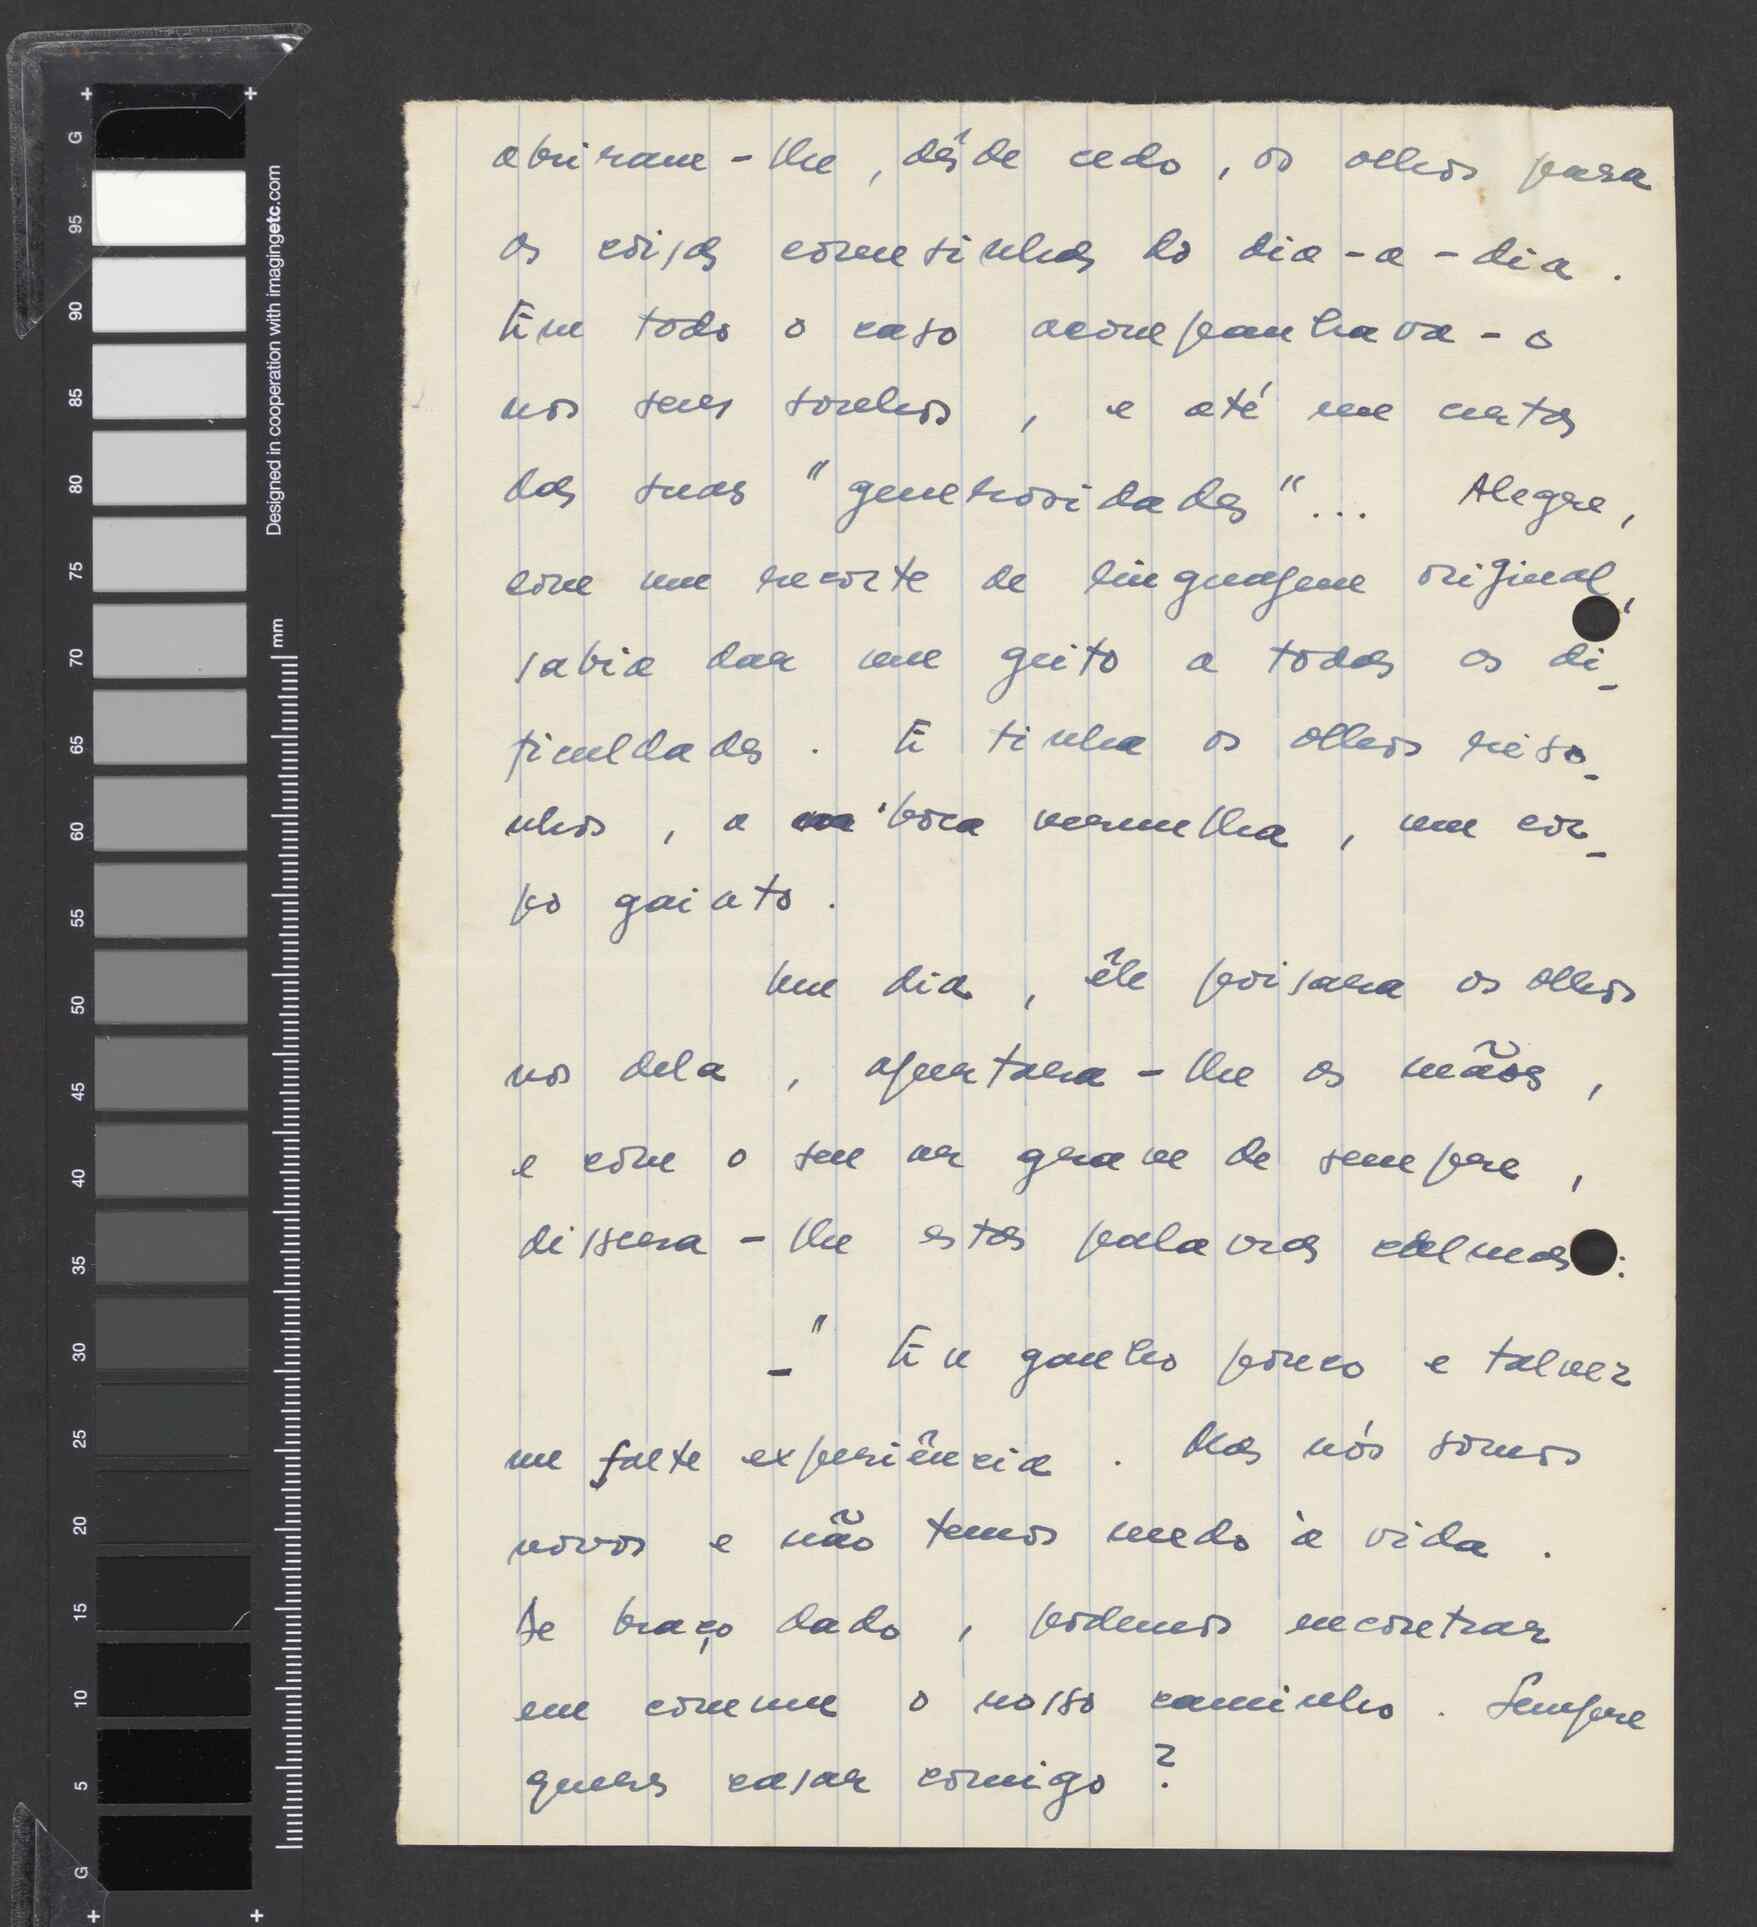 abriram-lhe, dêsde cedo, os olhos para
as coisas comesinhas do dia-a-dia.
Em todo o caso acompanhava-o
nos seus sonhos, e até em certas
das suas "generosidades"... Alegre,
com um recorte de linguagem original,
sabia dar um grito a todas as di-
ficuldades. E tinha os olhos riso-
nhos, a boca vermelha, um cor-
po gaiato.
Um dia, êle poisara os olhos
nos dela, apertara-lhe as mãos,
e com o seu ar grave de sempre,
dissera-lhe estas palavras calmas:
-" Eu ganho pouco e talvez
me falte experiência. Mas nós somos
novos e não temos medo à vida.
De braço dado, podemos encontrar
em comum o nosso caminho. Sempre
queres casar comigo?
G 95 90 85 80 75 70 65 60 55 50 45 40 35 30 25 20 15 10 5 G
Designed in cooperation with imagingetc.com
mm